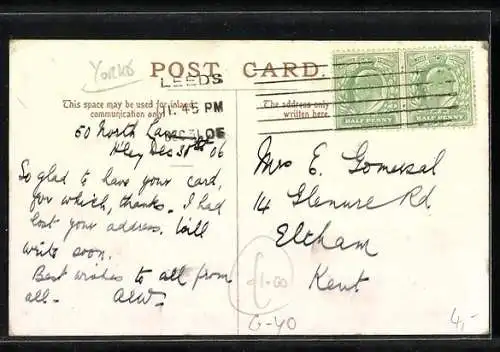 Yorks
POST CARD.
LEEDS
11.45 PM
DEC 31 06
This space may be used for inland
communication only.
The address only
written here.
HALF PENNY HALF PENNY
50 North Lane
Dec 31st 06
So glad to have your card,
for which, thanks. I had
lost your address. Will
write soon.
Best wishes to all from
all. AEW.
Mrs E. Gomersal
14 Glenure Rd.
Eltham
Kent
1-00
G-40
4,-